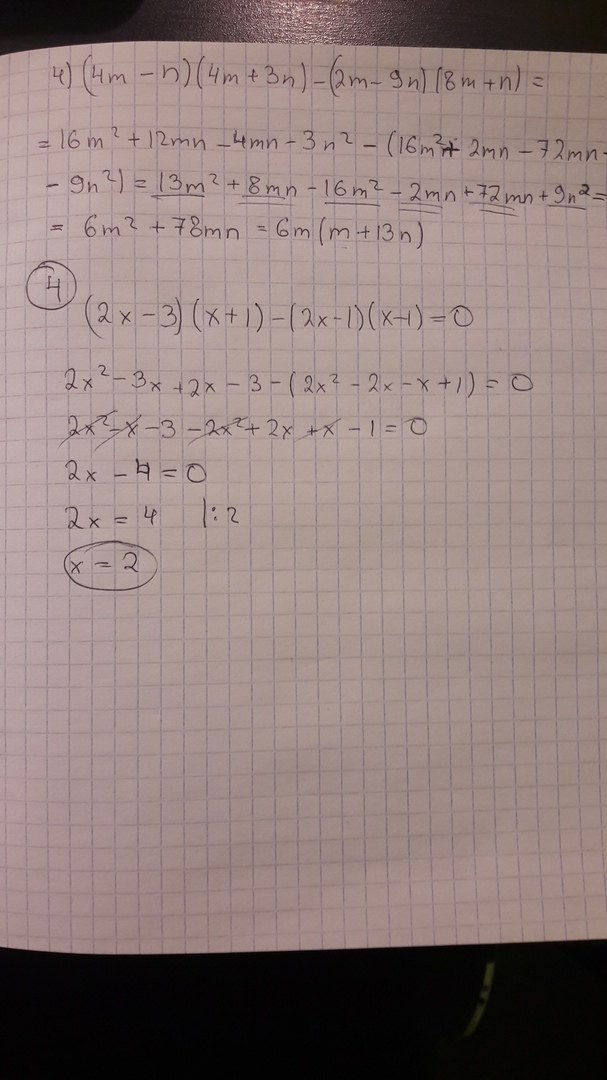 4) (4m - n)(4m + 3n) - (2m - 9n)(8m + n) =
= 16m² + 12mn - 4mn - 3n² - (16m² + 2mn - 72mn -
- 9n²) = 13m² + 8mn - 16m² - 2mn + 72mn + 9n² =
= 6m² + 78mn = 6m(m + 13n)
4
(2x - 3)(x + 1) - (2x - 1)(x - 1) = 0
2x² - 3x + 2x - 3 - (2x² - 2x - x + 1) = 0
2x² - x - 3 - 2x² + 2x + x - 1 = 0
2x - 4 = 0
2x = 4 |: 2
x = 2